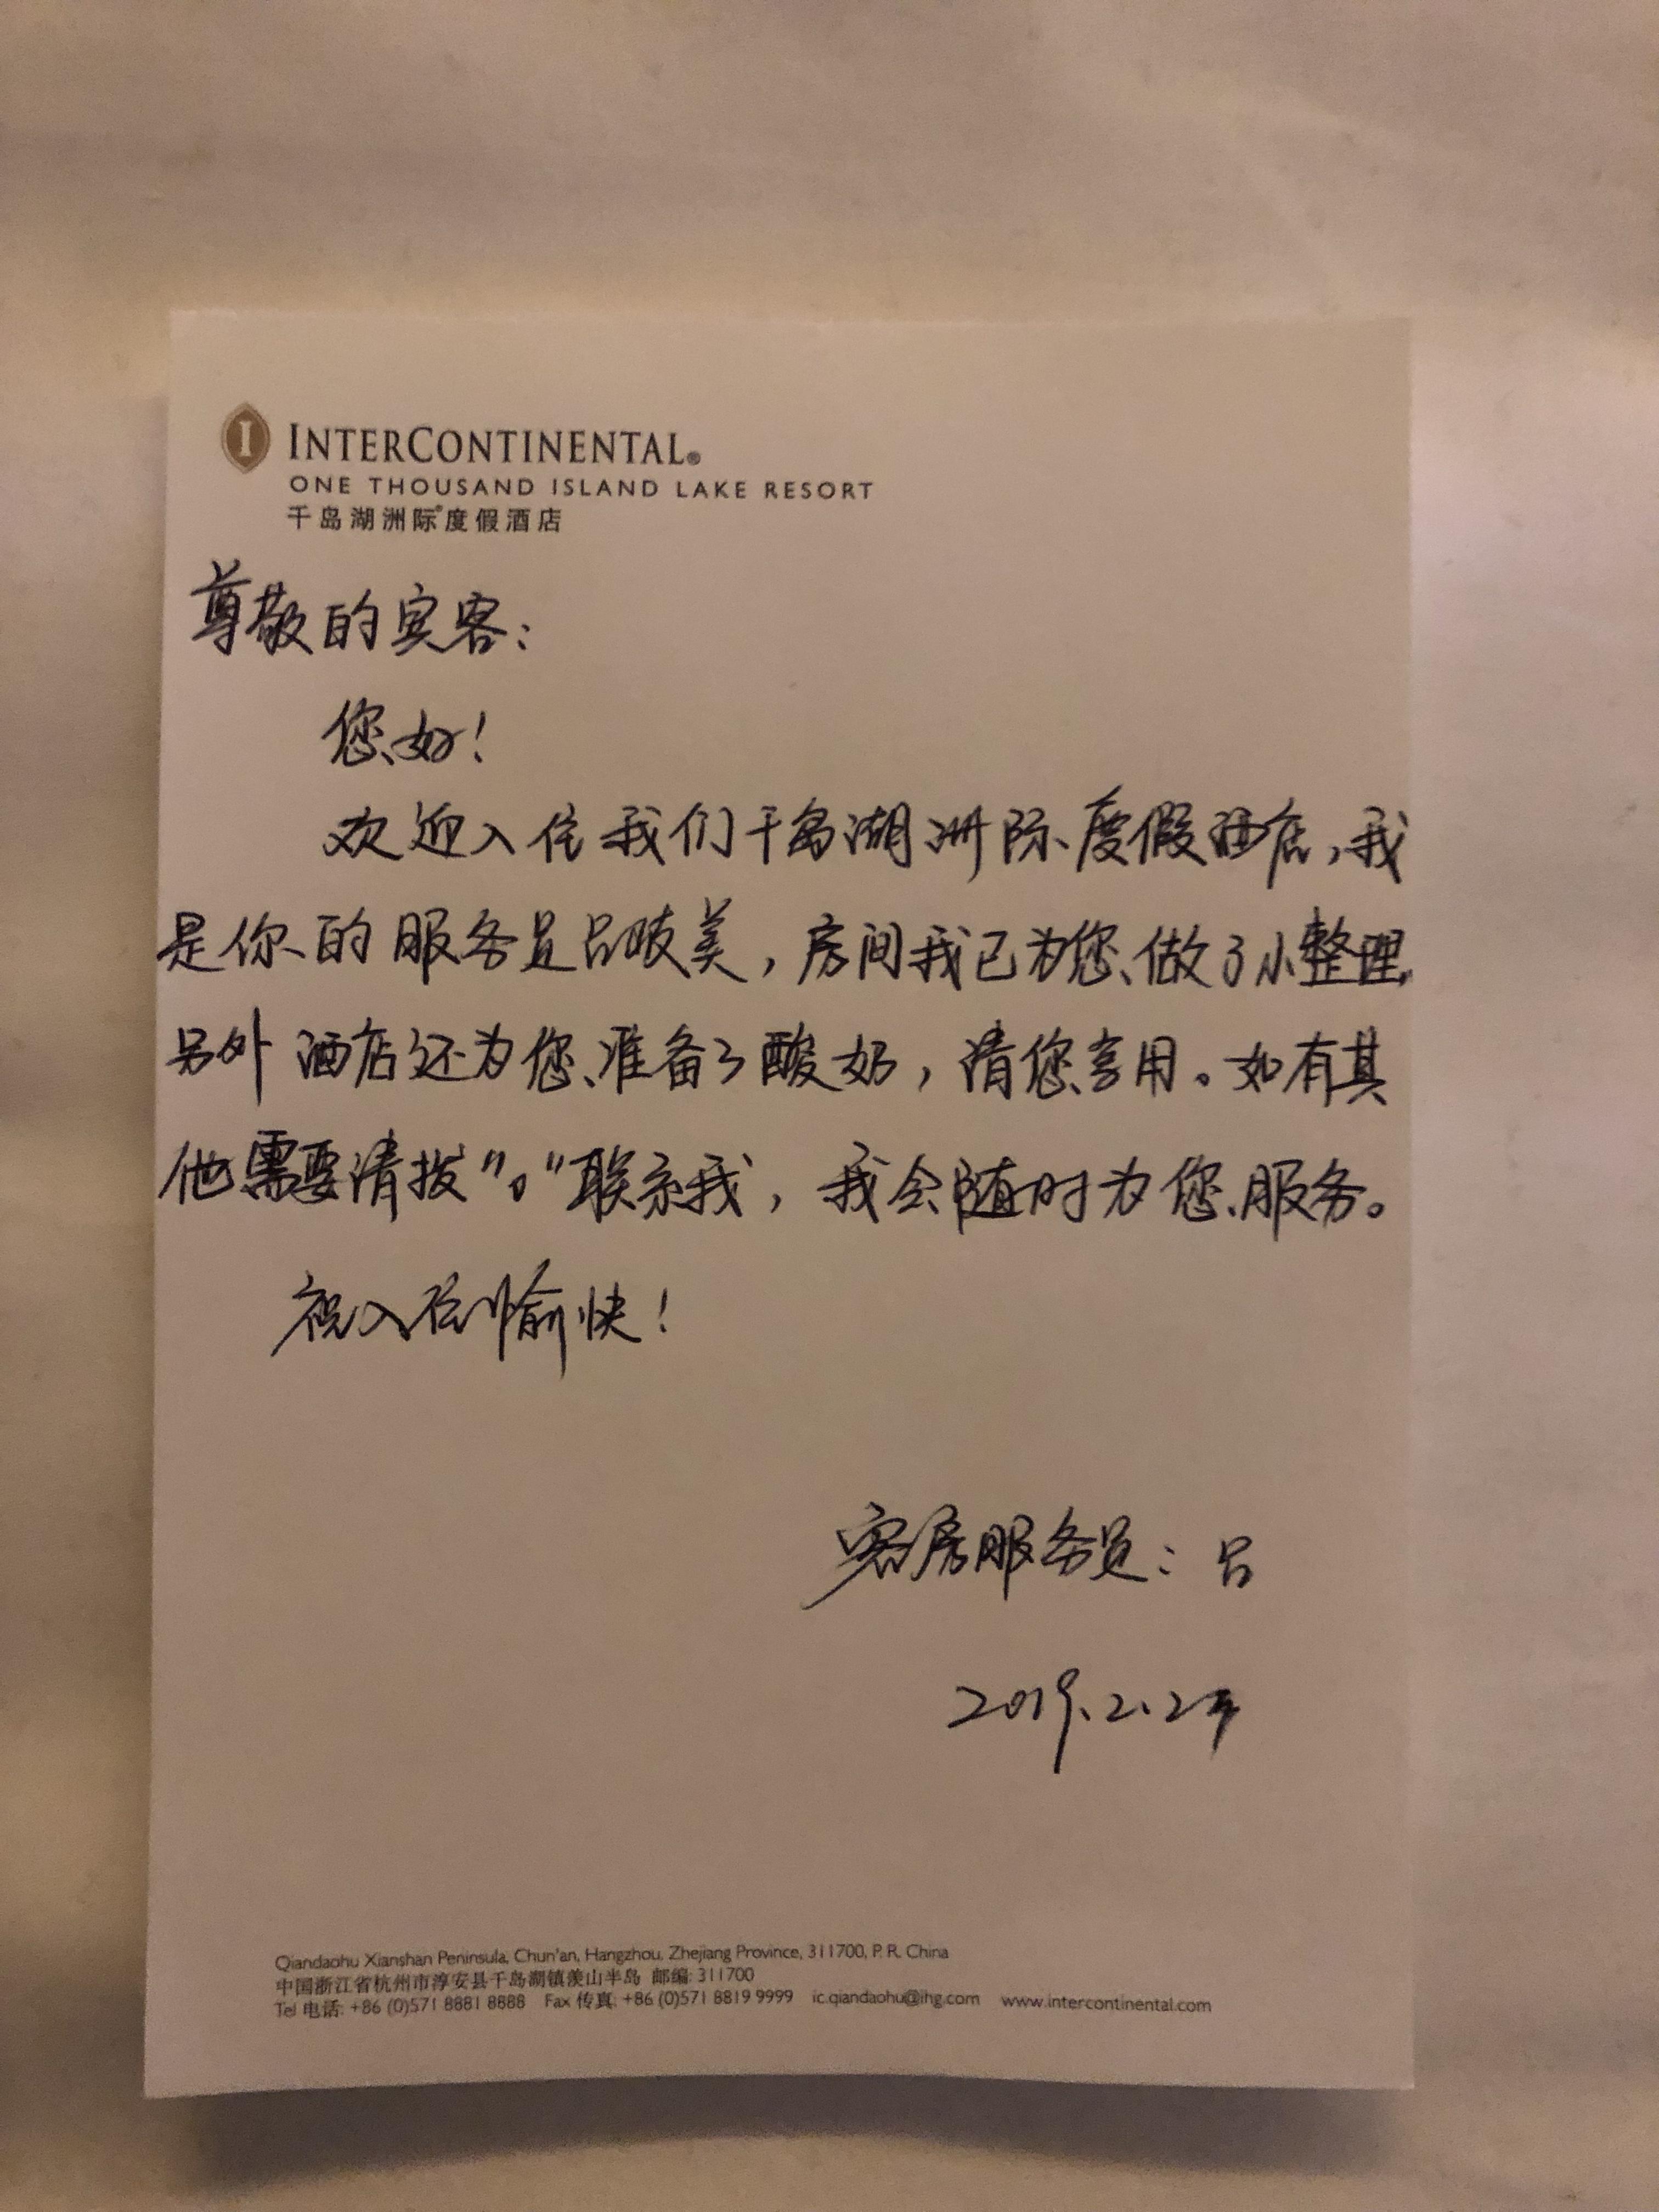 I INTERCONTINENTAL®
ONE THOUSAND ISLAND LAKE RESORT
千岛湖洲际®度假酒店
尊敬的宾客：
您好！
欢迎入住我们千岛湖洲际度假酒店，我
是你的服务员吕美，房间我已为您做了小整理，
另外酒店还为您准备了酸奶，请您享用。如有其
他需要请拨“0”联系我，我会随时为您服务。
祝入住愉快！
客房服务员：吕
2019.2.2
Qiandaohu Xianshan Peninsula, Chun'an, Hangzhou, Zhejiang Province, 311700, P. R. China
中国浙江省杭州市淳安县千岛湖镇羡山半岛 邮编: 311700
Tel 电话: +86 (0)571 8881 8888 Fax 传真: +86 (0)571 8819 9999 ic.qiandaohu@ihg.com www.intercontinental.com